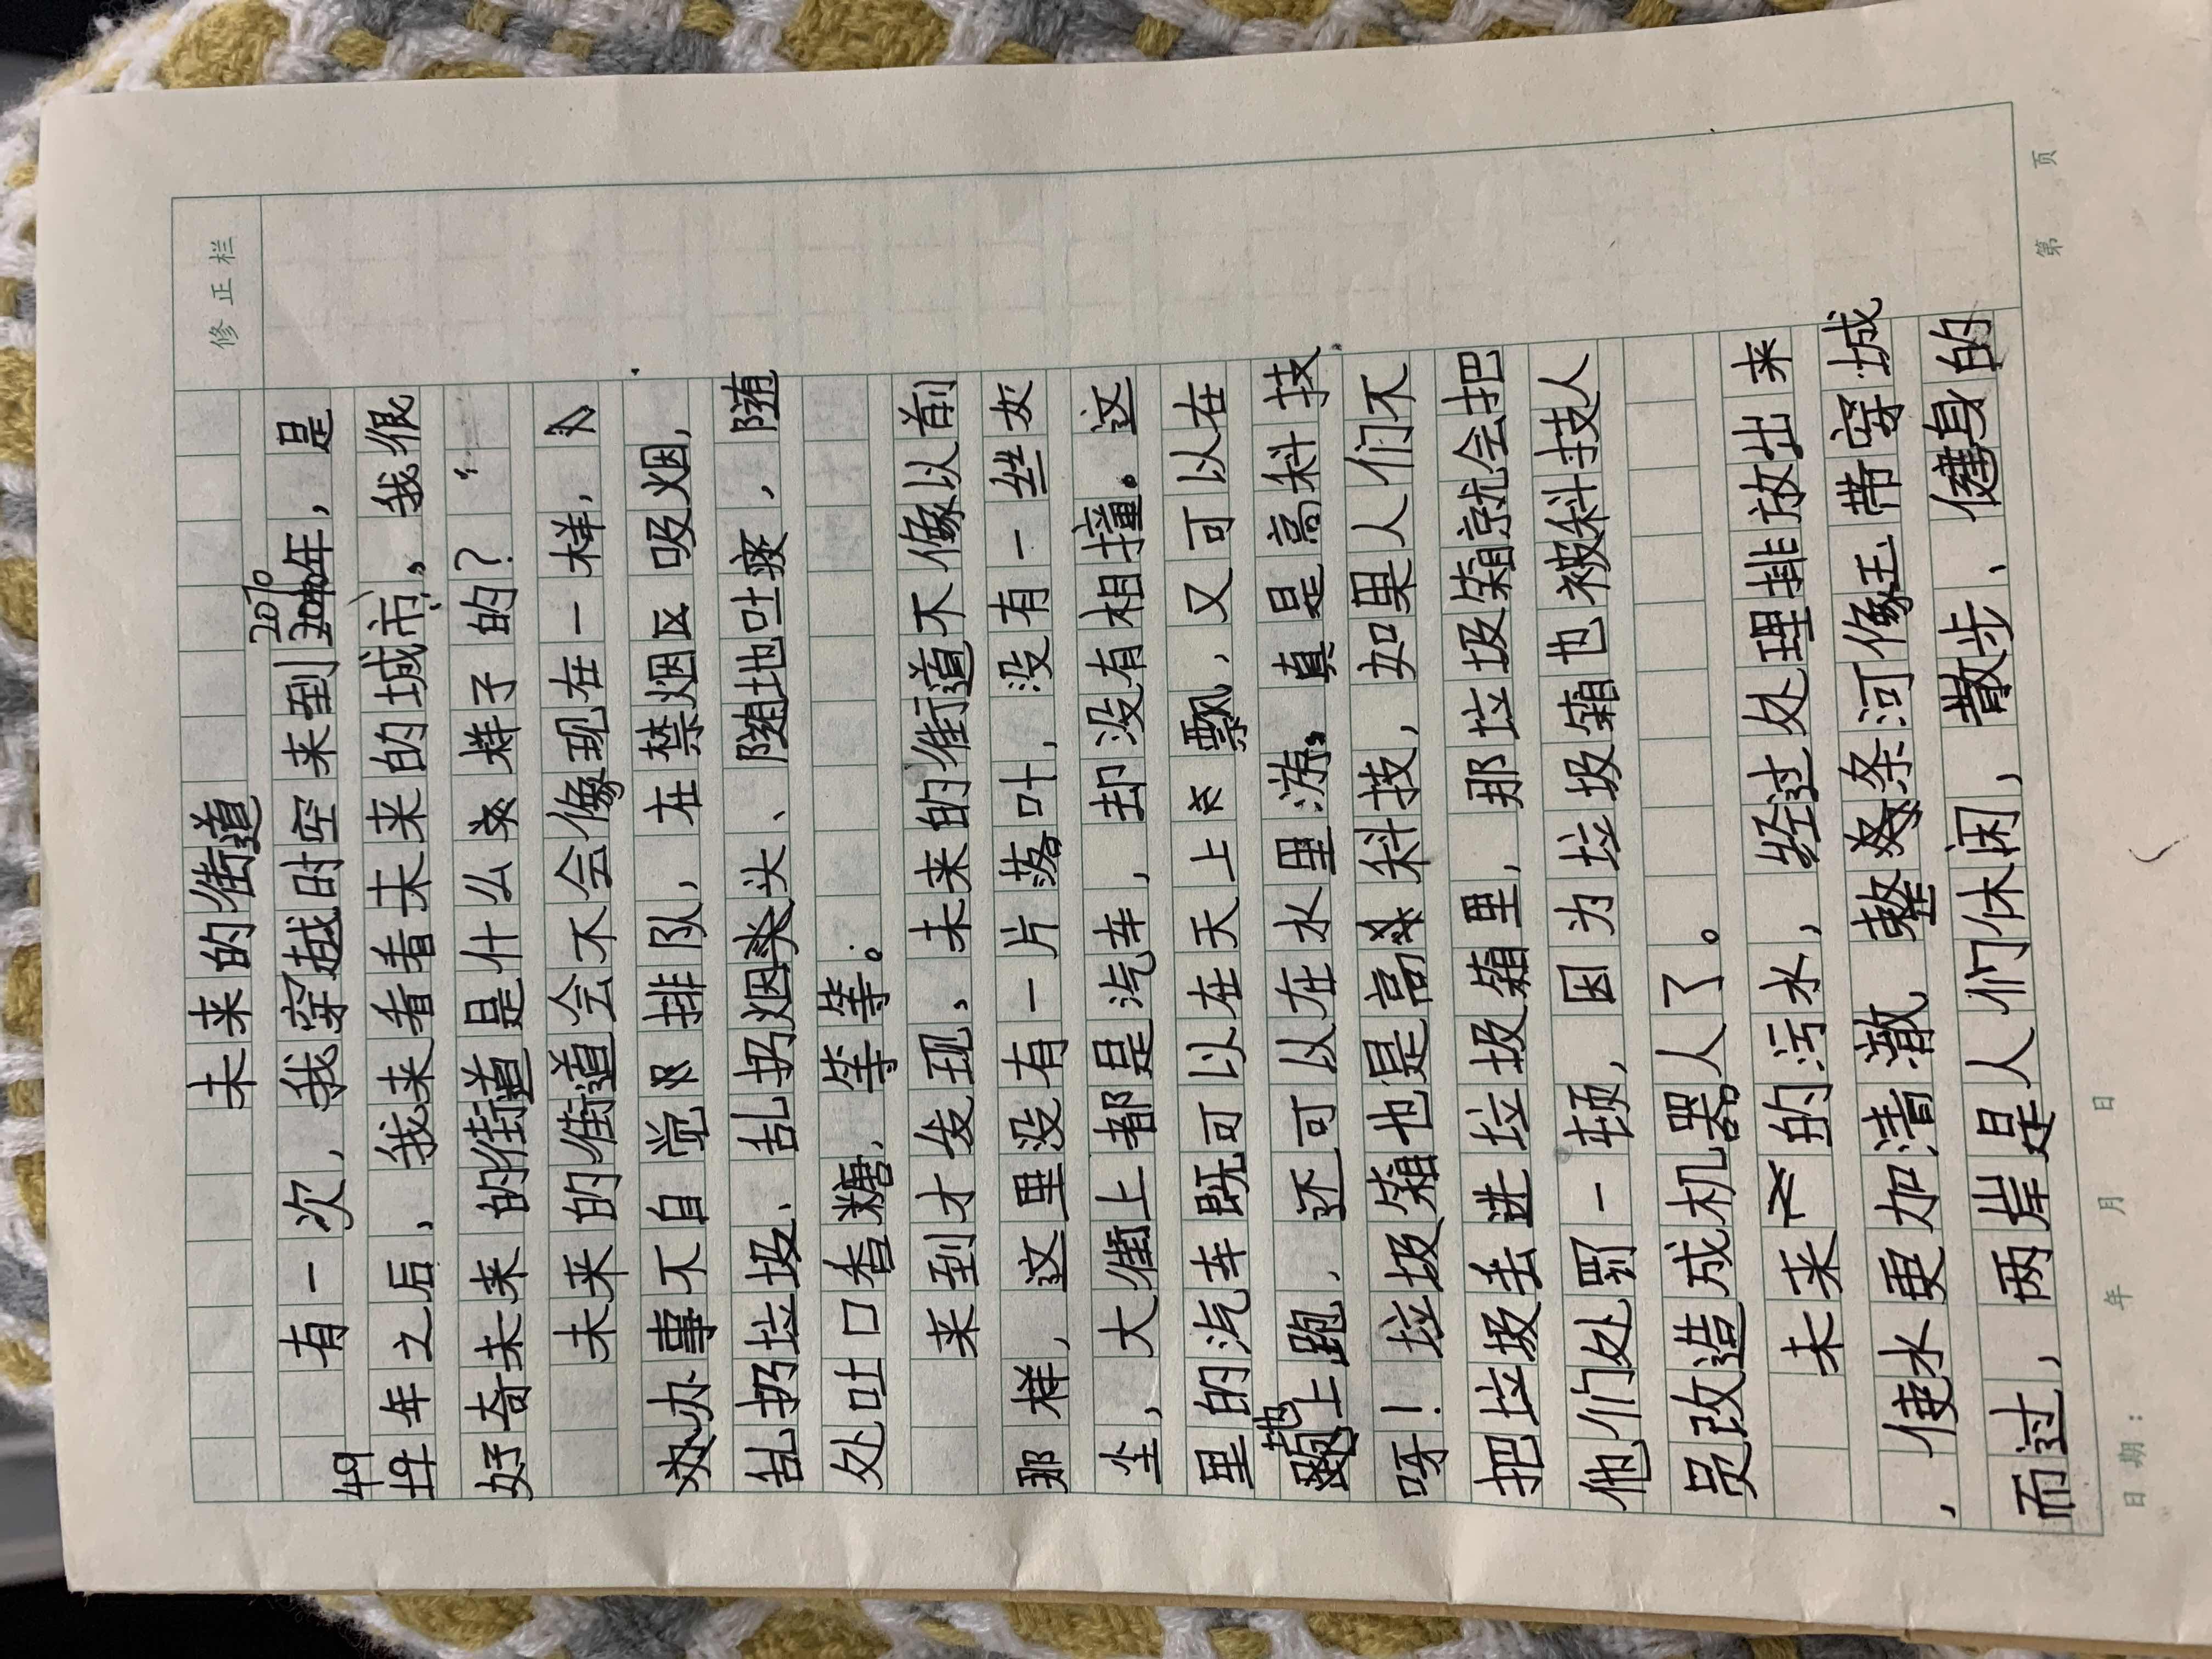 修正栏
未来的街道
有一次，我穿越时空来到2070年，是
49年之后，我来看看未来的城市。我很
好奇未来的街道是什么样子的？
未来的街道会不会像现在一样，人
办事不自觉排队，在禁烟区吸烟，
乱扔垃圾、乱扔烟头、随地吐痰，随
处吐口香糖，等等。
来到才发现，未来的街道不像以前
那样，这里没有一片落叶，没有一丝灰
尘，大街上都是汽车，却没有相撞。这
里的汽车既可以在天上飘，又可以在
地上跑，还可以在水里游。真是高科技
呀！垃圾箱也是高科技，如果人们不
把垃圾丢进垃圾箱里，那垃圾箱就会把
他们处罚一顿，因为垃圾箱也被科技人
员改造成机器人了。
未来的污水，经过处理排放出来
，使水更加清澈，整条河像玉带穿城
而过，两岸是人们休闲，散步、健身的
日期： 年 月 日 第 页